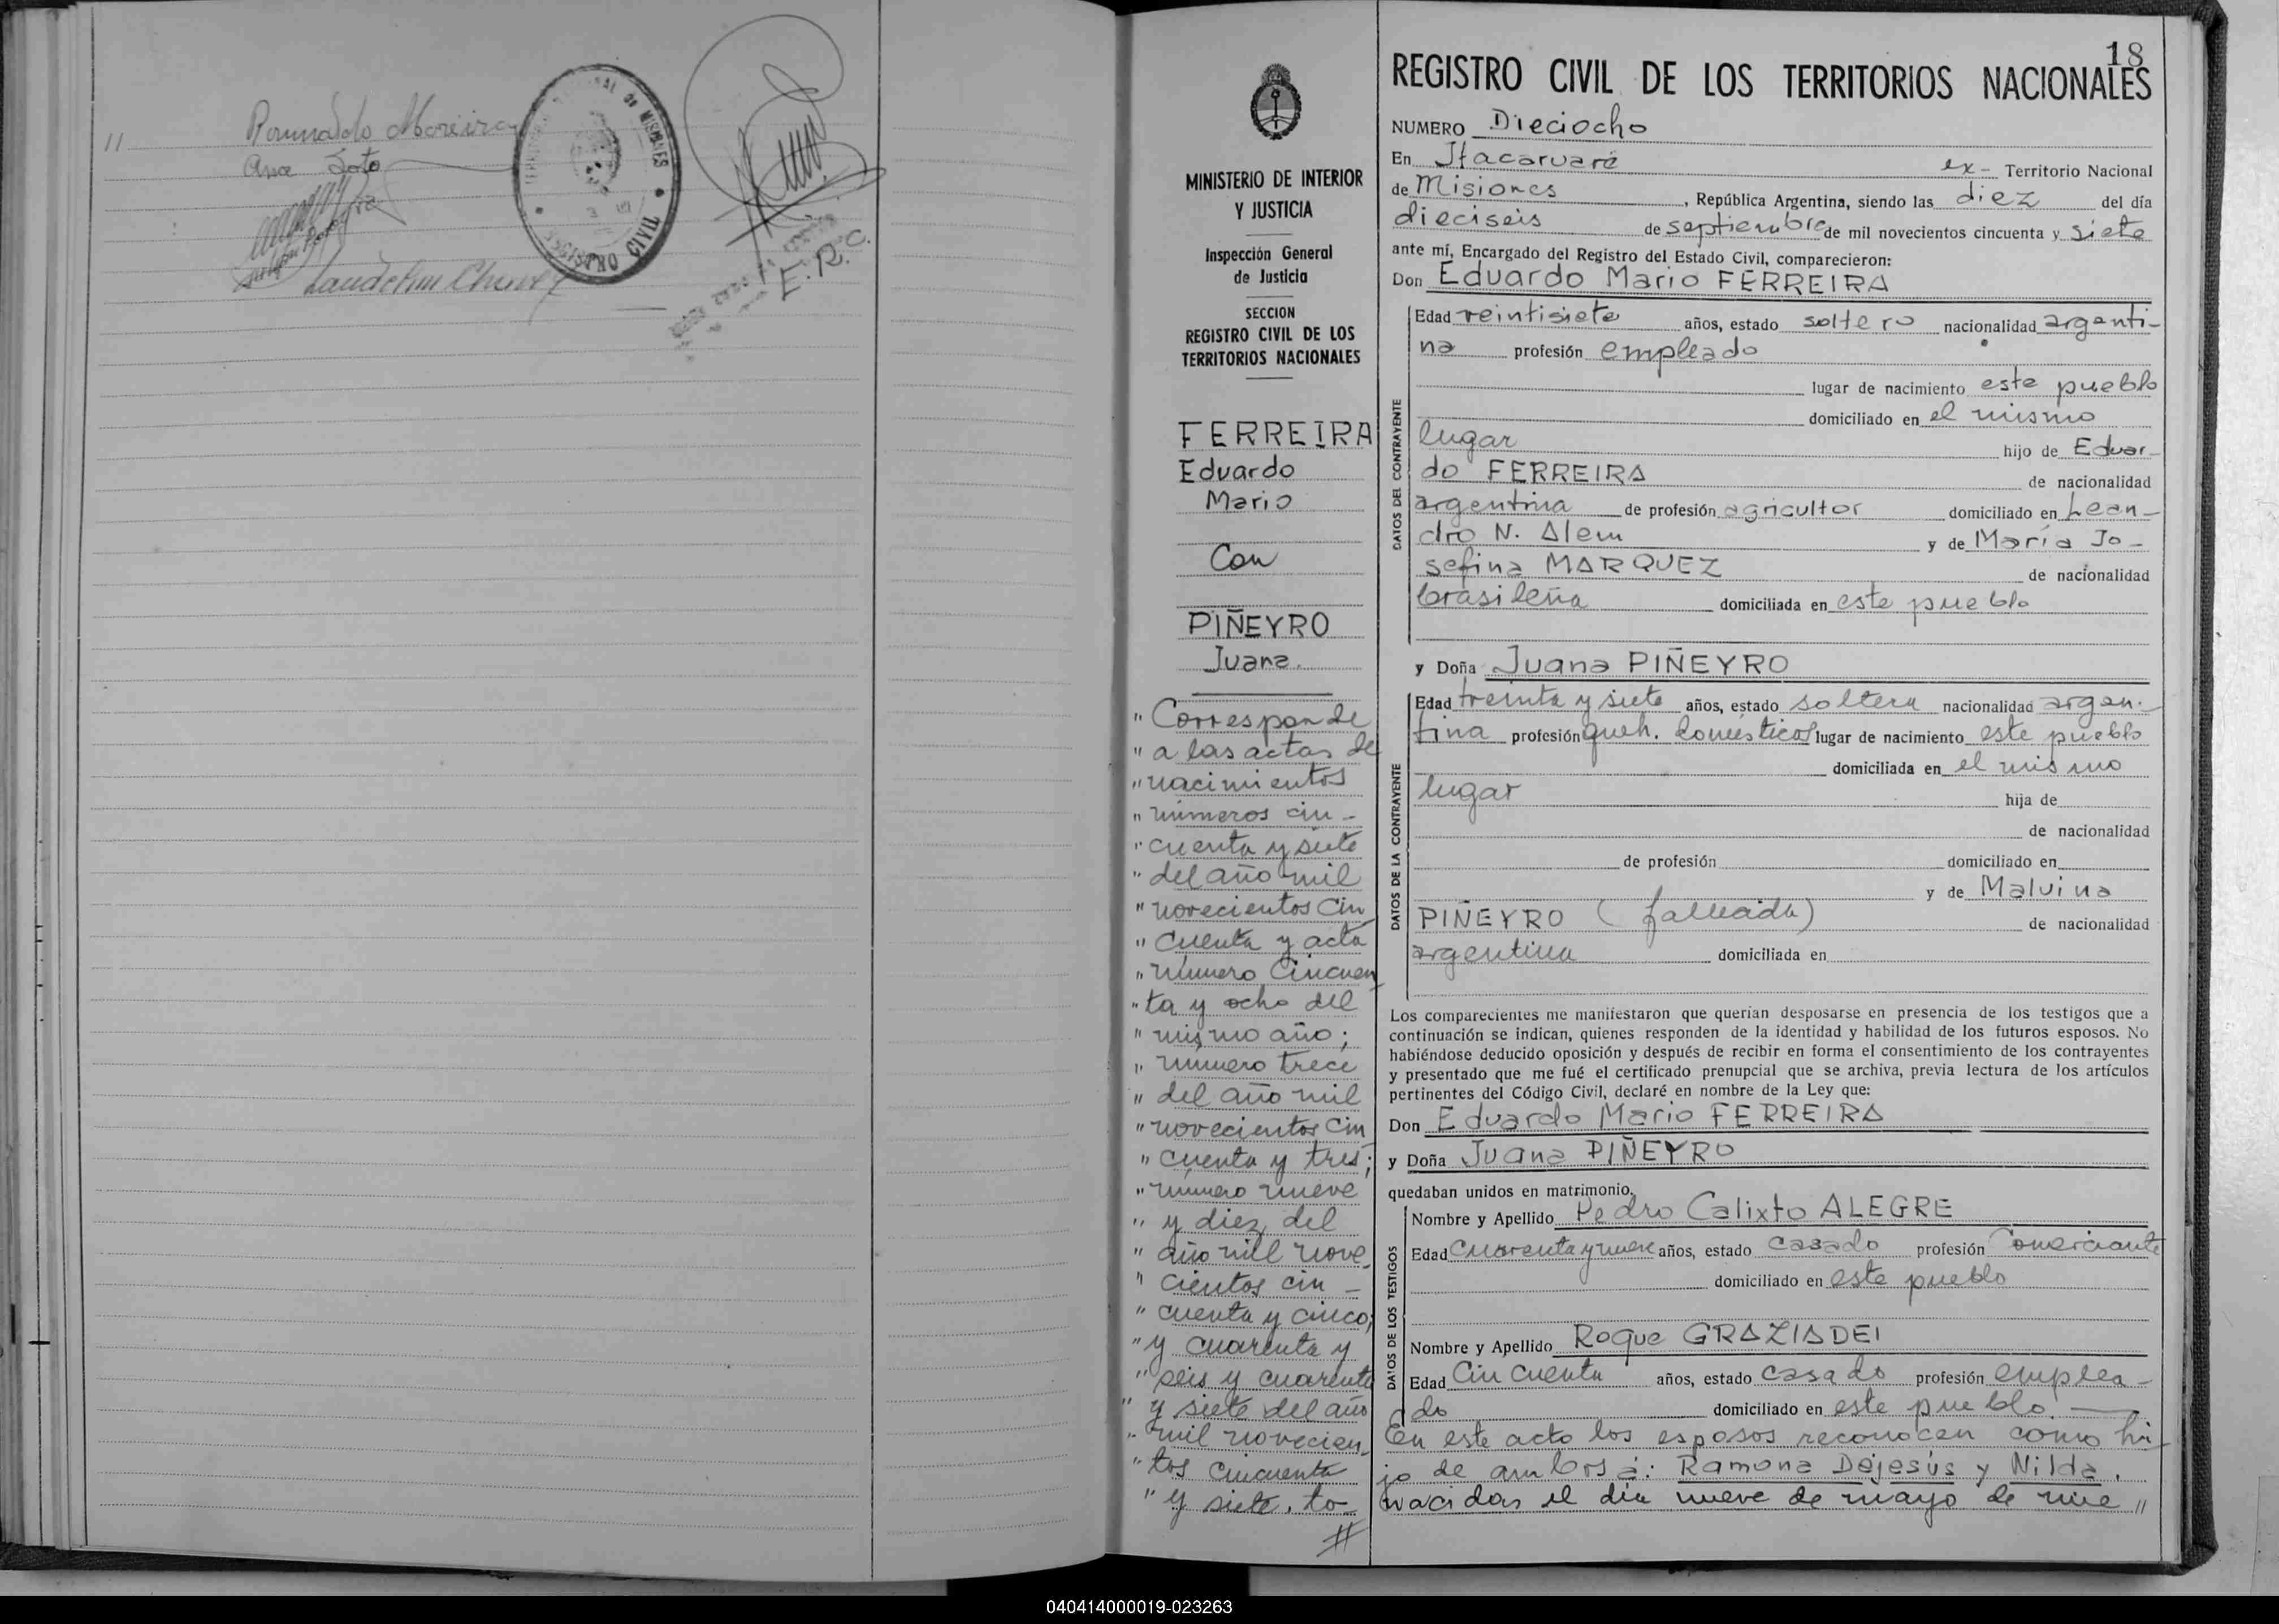 11
Romualdo Moreira
Ana Soto
REGISTRO CIVIL
de MISIONES
E.R.C.
18
REGISTRO CIVIL DE LOS TERRITORIOS NACIONALES
NUMERO Dieciocho
En Itacaruaré ex- Territorio Nacional
de Misiones, República Argentina, siendo las diez del día
dieciseis de septiembre de mil novecientos cincuenta y siete
ante mí, Encargado del Registro del Estado Civil, comparecieron:
Don Eduardo Mario FERREIRA
Edad veintisiete años, estado soltero nacionalidad argenti-
na profesión empleado
lugar de nacimiento este pueblo
domiciliado en el mismo
lugar hijo de Eduar-
do FERREIRA de nacionalidad
argentina de profesión agricultor domiciliado en Lean-
dro N. Alem y de María Jo-
sefina MARQUEZ de nacionalidad
brasileña domiciliada en este pueblo
DATOS DEL CONTRAYENTE
y Doña Juana PIÑEYRO
Edad treinta y siete años, estado soltera nacionalidad argen-
tina profesión queh. domésticos lugar de nacimiento este pueblo
domiciliada en el mismo
lugar hija de
de nacionalidad
de profesión domiciliado en
y de Malvina
PIÑEYRO (fallecida) de nacionalidad
argentina domiciliada en
DATOS DE LA CONTRAYENTE
Los comparecientes me manifestaron que querían desposarse en presencia de los testigos que a
continuación se indican, quienes responden de la identidad y habilidad de los futuros esposos. No
habiéndose deducido oposición y después de recibir en forma el consentimiento de los contrayentes
y presentado que me fué el certificado prenupcial que se archiva, previa lectura de los artículos
pertinentes del Código Civil, declaré en nombre de la Ley que:
Don Eduardo Mario FERREIRA
y Doña Juana PIÑEYRO
quedaban unidos en matrimonio.
Nombre y Apellido Pedro Calixto ALEGRE
Edad Cuarenta y nueve años, estado casado profesión Comerciante
domiciliado en este pueblo
Nombre y Apellido Roque GRAZIADEI
Edad Cincuenta años, estado casado profesión emplea-
do domiciliado en este pueblo.
DATOS DE LOS TESTIGOS
En este acto los esposos reconocen como hi-
jo de ambos a: Ramona Dejesús y Nilda,
nacidas el día nueve de mayo de mil "
MINISTERIO DE INTERIOR
Y JUSTICIA
Inspección General
de Justicia
SECCION
REGISTRO CIVIL DE LOS
TERRITORIOS NACIONALES
FERREIRA
Eduardo
Mario
Con
PIÑEYRO
Juana.
" Corresponde
" a las actas de
" nacimientos
" números cin-
" cuenta y siete
" del año mil
" novecientos cin
" cuenta y acta
" número cincuen
" ta y ocho del
" mismo año;
" número trece
" del año mil
" novecientos cin
" cuenta y tres;
" número nueve
" y diez, del
" año mil nove
" cientos cin-
" cuenta y cinco,
" y cuarenta y
" seis y cuarenta
" y siete del año
" mil novecien-
" tos cincuenta
" y siete, to-
#
040414000019-023263